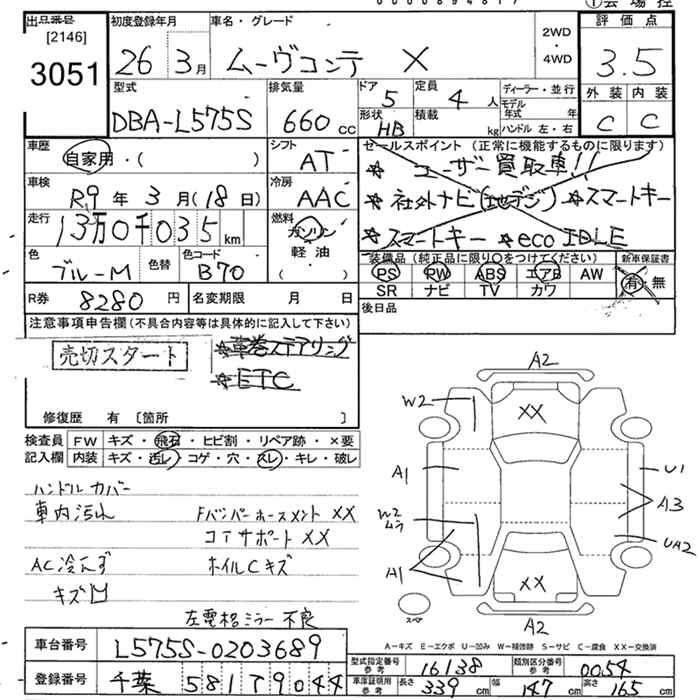 出品番号 初度登録年月 車名・グレード 評価点
[2146]
3051 26年 3月 ムーヴコンテ X 2WD・4WD 3.5
型式 排気量 ドア 5 定員 4人 ディーラー・並行 外装 内装
DBA-L575S 660cc 形状 HB 積載 kg モデル年式 年 ハンドル 左・右 C C
車歴 シフト セールスポイント (正常に機能するものに限ります)
自家用・( ) AT ☆ユーザー買取車!!
車検 冷房 ☆社外ナビ(地デジ) ☆スマートキー
R9年 3月(18日) AAC
走行 燃料 ☆スマートキー ☆eco IDLE
13万0千035km ガソリン
色 色替 色コード 軽油 装備品(純正品に限り○をつけてください) 新車保証書
ブルーM B70 ( ) PS PW ABS エアB AW 有・無
SR ナビ TV カワ
R券 8280円 名変期限 月 日 後日品
注意事項申告欄(不具合内容等は具体的に記入して下さい)
売切スタート ☆革巻ステアリング
☆ETC
修復歴 有 〔箇所 〕
検査員 FW キズ・飛石・ヒビ割・リペア跡・×要
記入欄 内装 キズ・汚レ・コゲ・穴・スレ・キレ・破レ
ハンドルカバー
車内汚れ Fバンパーホースメント XX
コアサポート XX
AC冷えず ホイルCキズ
キズ凹
左電格ミラー不良
A2
W2 XX
A1 U1
A3
W2
ムラ
UA2
A1
XX
スペア A2
A-キズ E-エクボ U-凹み W-補修跡 S-サビ C-腐食 XX-交換済
車台番号 L575S-0203689
型式指定番号 参考 16138 類別区分番号 参考 0054
登録番号 千葉 581 フ 9044
車庫証明用 参考 長さ 339cm 幅 147cm 高さ 165cm